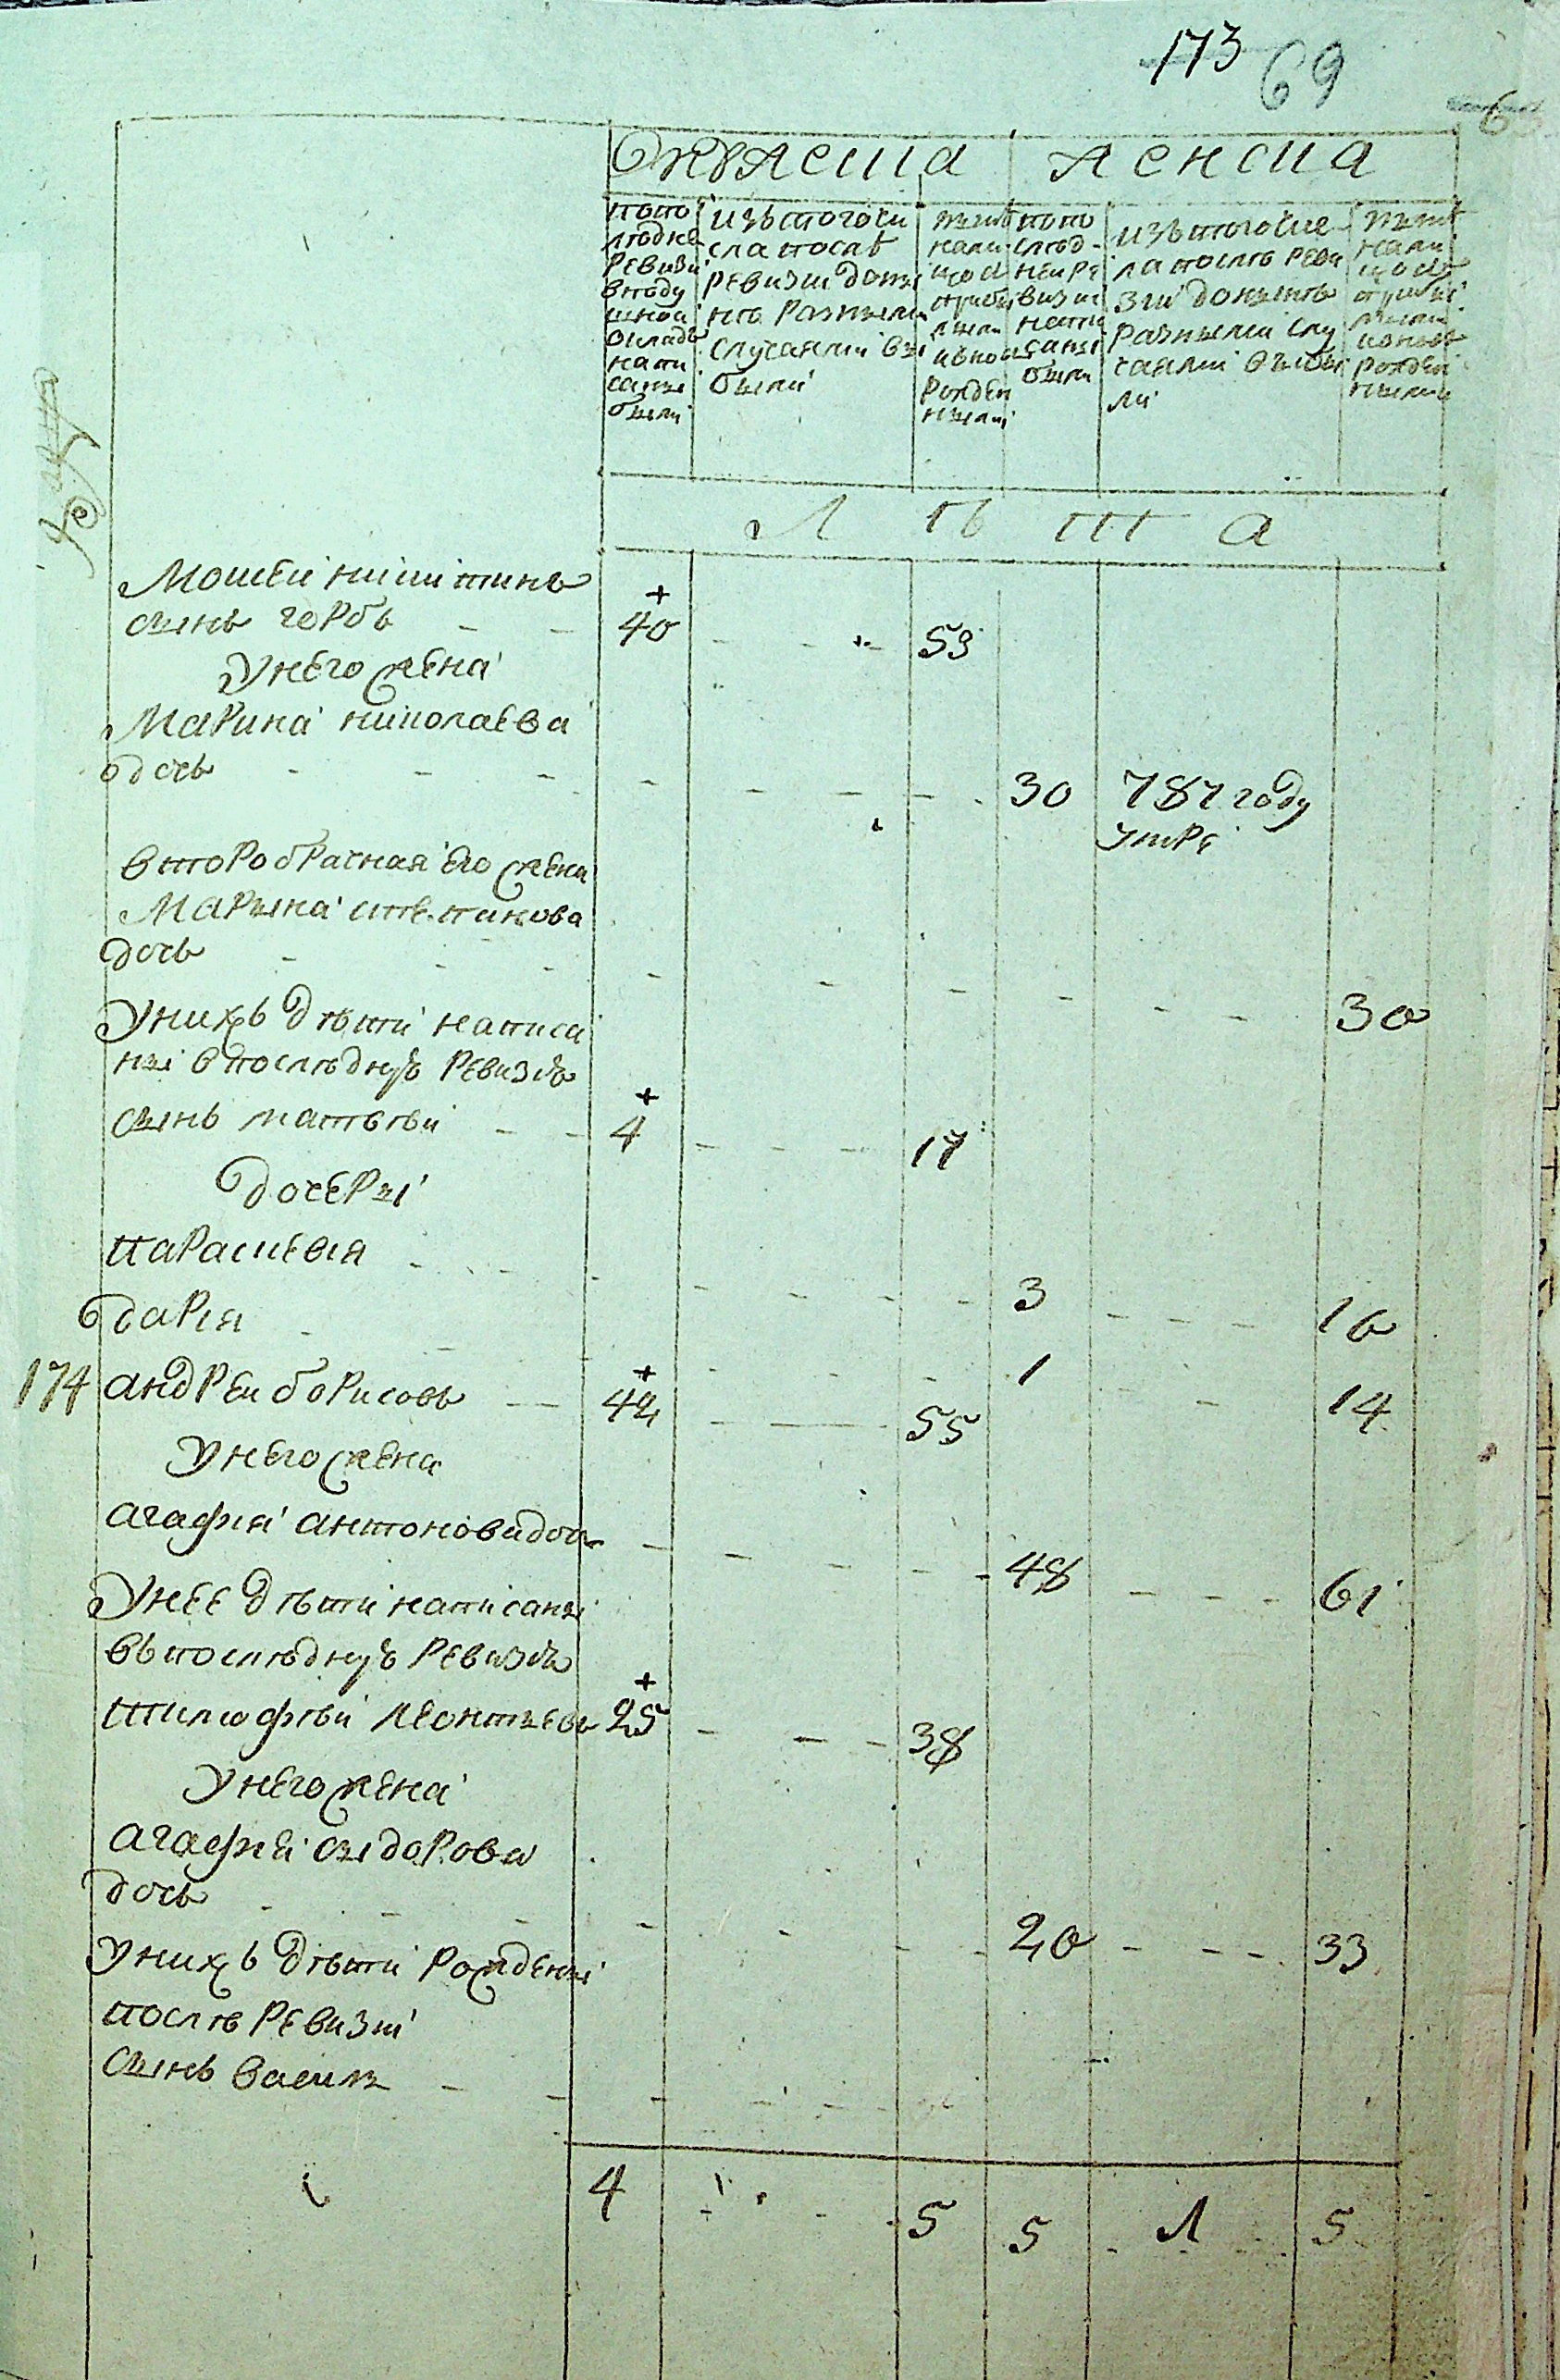 173 69
Мужеска женска
попо последнѣ ревизи в подушной окладѣ написаны были
изъ того числа послѣ ревизии до нынѣ разными случаями выбыли
нынѣ налицо съ прибылыми и вновь рожденными
по последней ревизии написаны были
изъ того числа послѣ ревизии до нынѣ разными случаями выбыли
нынѣ налицо съ прибылыми и вновь рожденными
Л ѣ т а
Моисеи никитинъ
сынъ горбъ 40 59
У него жена
Марина николаева
дочь 30 787 году
умре
второбрачная его жена
Марына
дочь 30
У нихъ дѣти написа
ны в последнуъ ревизiю
сынъ матвѣй 4 17
дочеры
парасиевiя 3 16
дарiя 1 14
174 андреи борисовъ 42 55
У него жена
агафия антонова доч 48 61
У нее дѣти написаны
въ последнуъ ревизiю
тимофѣй леонтьевъ 25 38
У него жена
агафия сыдорова
дочь 20 33
У нихъ дѣти рождены
послѣ ревизии
сынъ василь
4 5 5 1 5